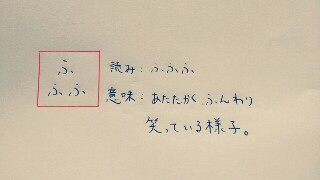 ふ
ふふ
読み：ふふふ
意味：あたたかくふんわり
笑っている様子。